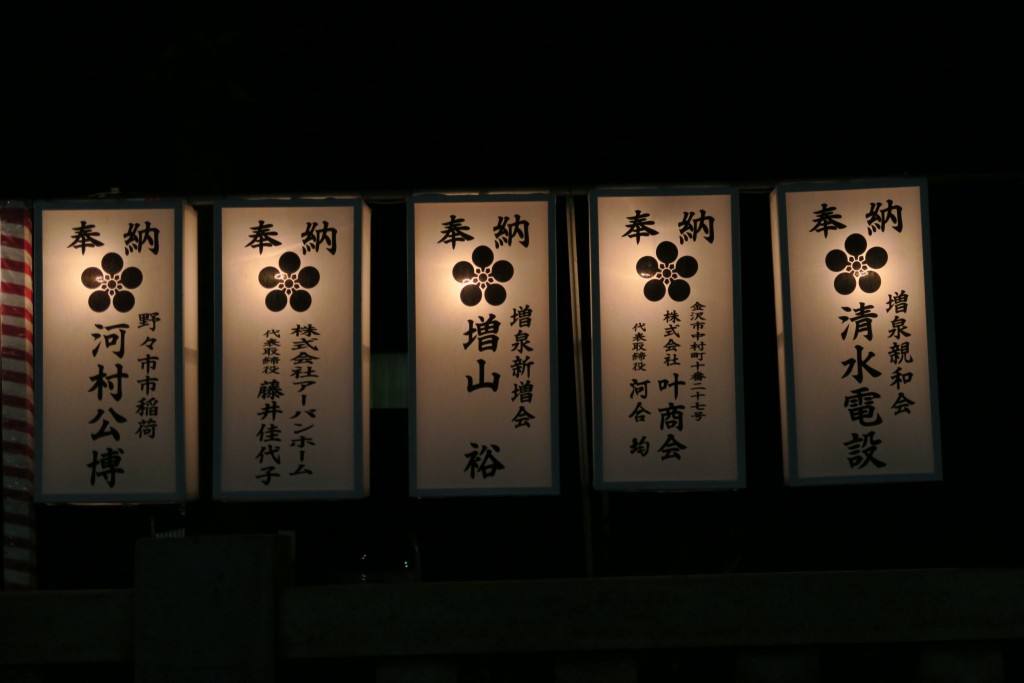 奉納
野々市市稲荷
河村公博
奉納
株式会社アーバンホーム
代表取締役 藤井佳代子
奉納
増泉新増会
増山 裕
奉納
金沢市中村町十番二十七号
株式会社 叶商会
代表取締役 河合 均
奉納
増泉親和会
清水電設